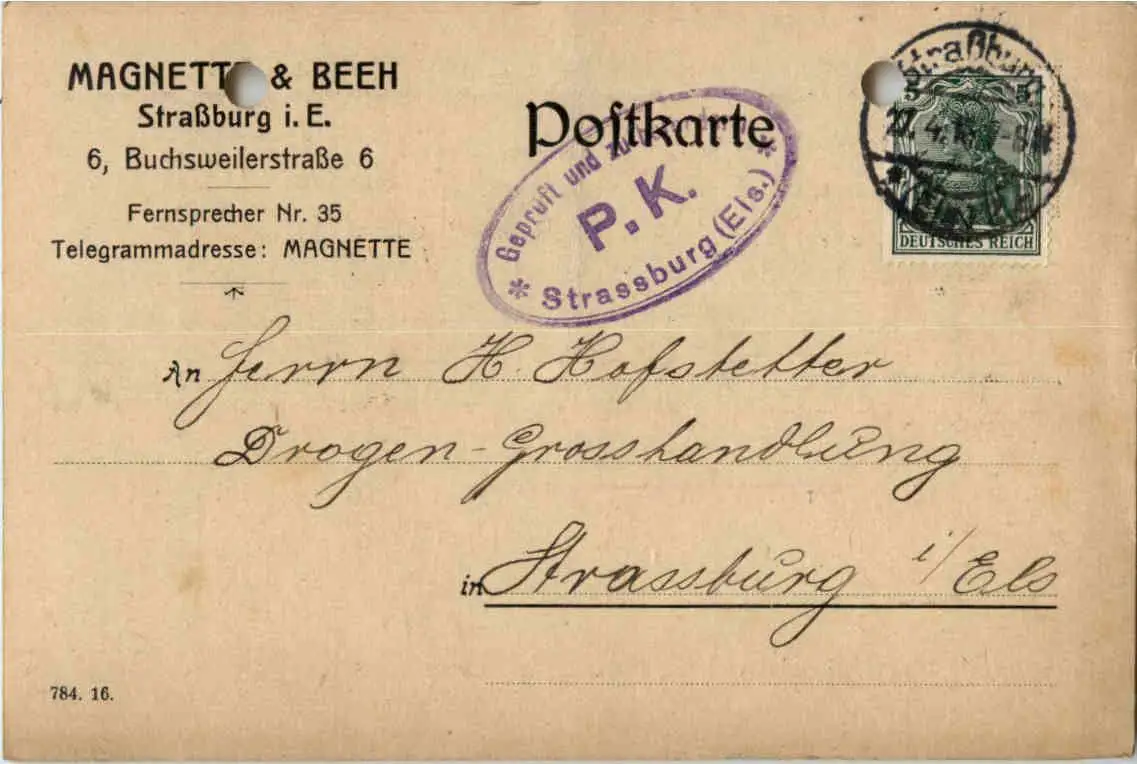 MAGNETTE & BEEH
Straßburg i. E.
6, Buchsweilerstraße 6
Fernsprecher Nr. 35
Telegrammadresse: MAGNETTE
Poſtkarte
Geprüft und zu
P. K.
* Strassburg (Els.) *
Straßburg
27. 4.
5
DEUTSCHES REICH
An Herrn H. Hofstetter
Drogen-Grosshandlung
in Strassburg i/Els
784. 16.